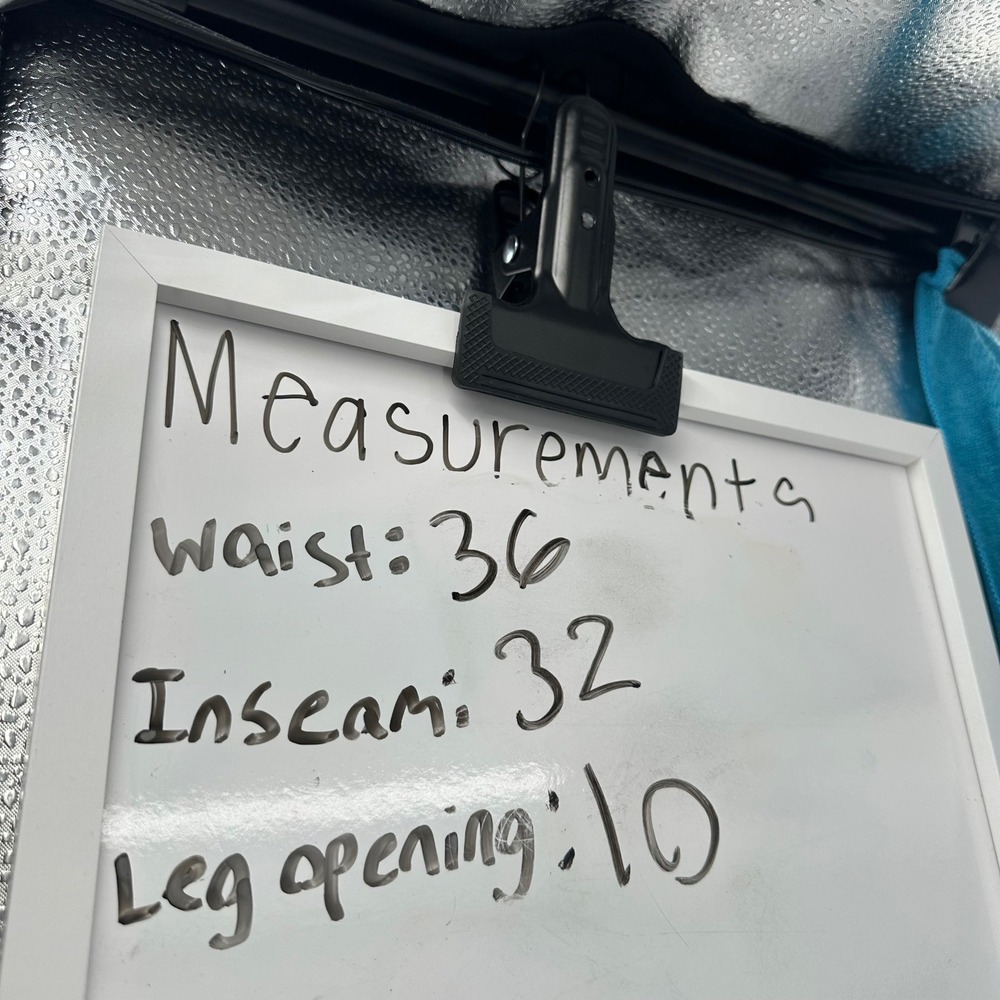 Measurements
Waist: 36
Inseam: 32
Leg opening: 10